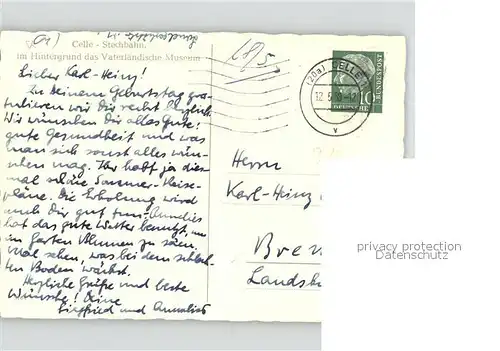 Celle - Stechbahn,
im Hintergrund das Vaterländische Museum
18/5
(20a) CELLE
12.5.
DEUTSCHE
BUNDESPOST
10
Lieber Karl-Heinz!
Zu Deinem Geburtstag gra-
tulieren wir Dir recht herzlich.
Wir wünschen Dir alles Gute!
gute Gesundheit und was
man sich sonst alles wün-
schen mag. Ihr habt ja dies-
mal schöne Sommer-Reise-
pläne. Die Erholung wird
auch Dir gut tun. Annelies
hat das gute Wetter benutzt, um
im Garten Blumen zu säen.
Mal sehen, was bei dem schlech-
ten Boden wächst.
Herzliche Grüße und beste
Wünsche! Deine
Siegfried und Annelies
Herrn
Karl-Heinz
Brem
Landsh
privacy protection
DATENSCHUTZ